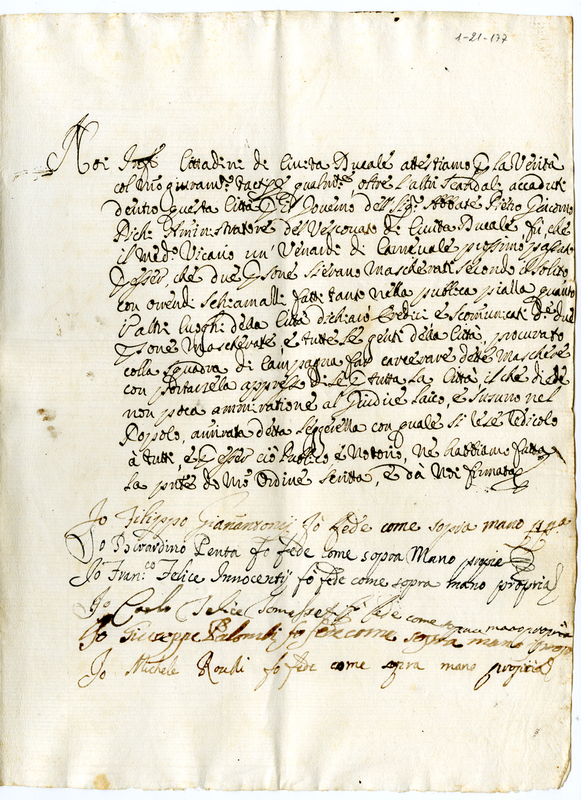 1-21-177
Noi Infri Cittadini di Civita Ducale attestiamo p la Verità
col Nro giuramto tactis qualmte oltre l'altri Scandali accaduti
dentro questa Città il Governo dell' Sig. Abbate Pietro Giacomo
Pichi Amministratore del Vescovato di Civita Ducale fù, che
il medo Vicario un' Venardì di Carnevale prossimo passato
p esser, che due psone si erano Mascherati secondo il solito
con orrendi schiamalli fatti tanto nella publica piazza quanto
l'altri luoghi della Città dichiarò eretici e scomunicati le due
psone Mascherate, e tutte le genti della Città, procurato
colla squadra di Campagna far carcerare dette Maschere
con portarsela appresso di se p tutta la Città il che diede
non poca ammiratione al Giudice laico, e susurro nel
Popolo, ammirata detta leggerezza con quale si rese ridicolo
à tutti, e p esser ciò Publico e Notorio, ne habbiamo fatta
la pnte di Nro Ordine scritta, e dà Noi firmata
Io Filippo Gianantonij fò fede come sopra mano ppa
Io Berardino Penta fo fede come sopra Mano propria
Io Fran.co Felice Innocentij fò fede come sopra mano propria
Io Carlo Felice fò fede come sopra mano propria
Io Giuseppe Palombi fo fede come sopra mano propria
Io Michele Roselli fò fede come sopra mano propria